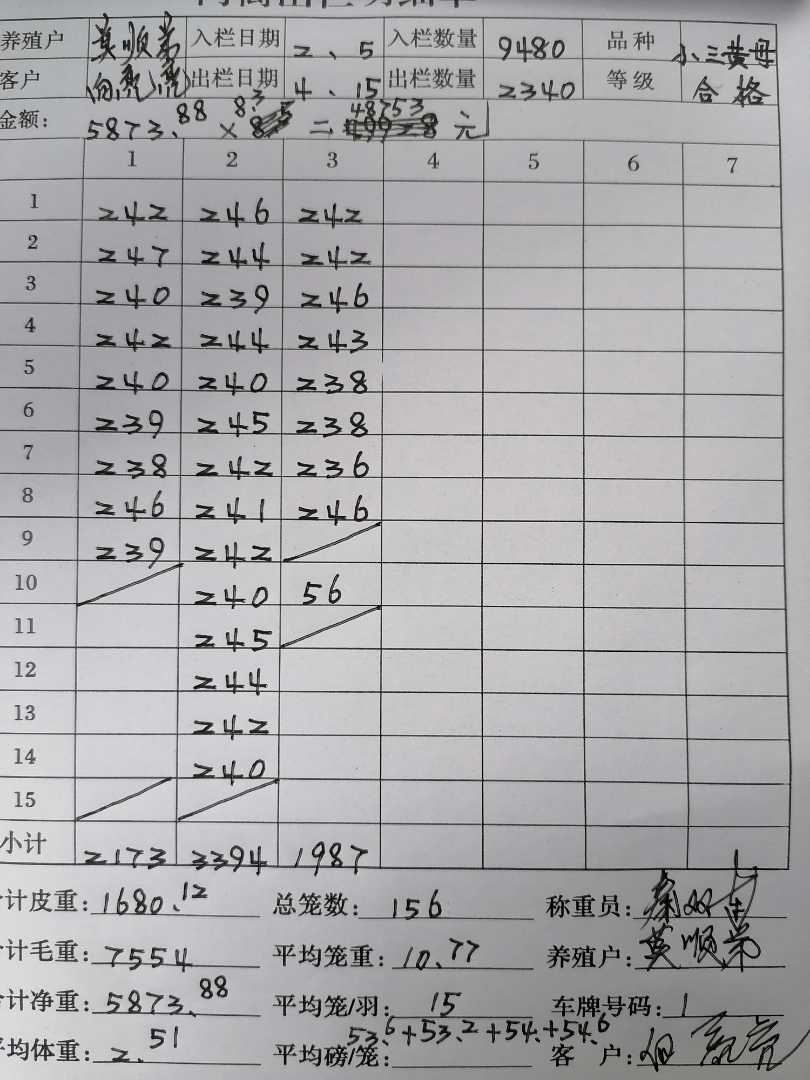 养殖户 莫顺弟 入栏日期 2、5 入栏数量 9480 品种 小三黄母
客户 出栏日期 4、15 出栏数量 2340 等级 合格
金额: 5873.88 × 8.3 = 48753 元
1 2 3 4 5 6 7
1 242 246 242
2 247 244 242
3 240 239 246
4 242 244 243
5 240 240 238
6 239 245 238
7 238 242 236
8 246 241 246
9 239 242
10 240 56
11 245
12 244
13 242
14 240
15
小计 2173 3394 1987
计皮重: 1680.12 总笼数: 156 称重员:
计毛重: 7554 平均笼重: 10.77 养殖户: 莫顺弟
计净重: 5873.88 平均笼/羽: 15 车牌号码: 1
平均体重: 2.51 平均磅/笼: 53.6+53.2+54.+54.6 客户: